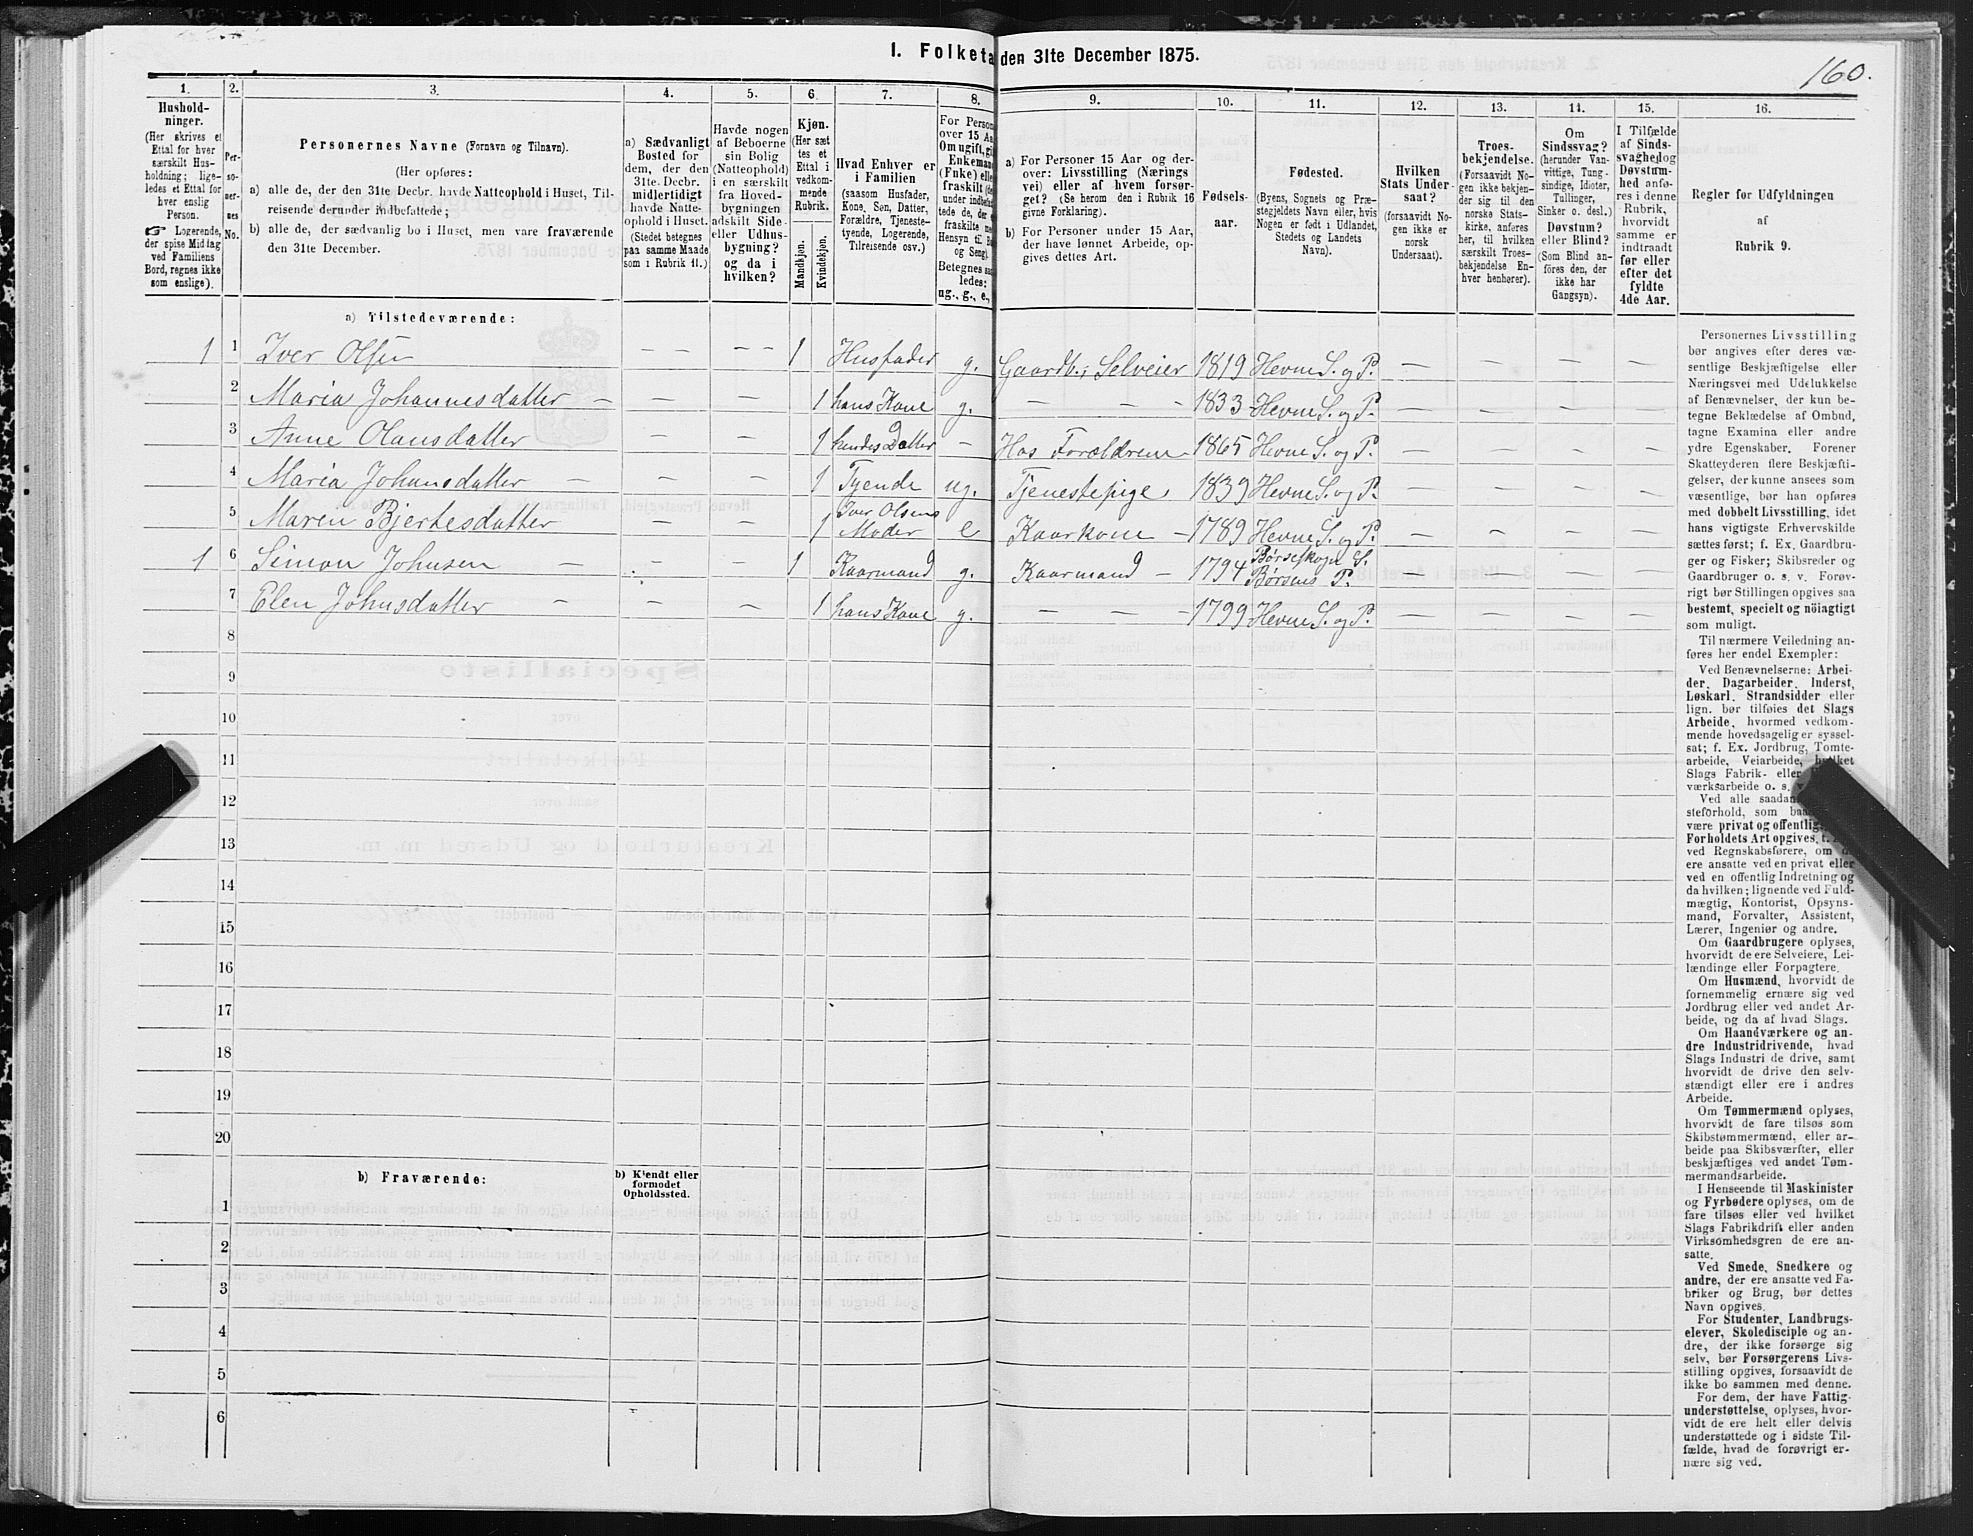 160.
1. Folketa den 31te December 1875.
1. 2. 3. 4. 5. 6. 7. 8. 9. 10. 11. 12. 13. 14. 15. 16.
Hushold-
ninger.
(Her skrives et
Ettal for hver
særskilt Hus-
holdning; lige-
ledes et Ettal for
hver enslig
Person.
Logerende,
der spise Middag
ved Familiens
Bord, regnes ikke
som enslige).
Per-
so-
ner-
nes
No.
Personernes Navne (Fornavn og Tilnavn).
(Her opføres:
a) alle de, der den 31te Decbr. havde Natteophold i Huset, Til-
reisende derunder indbefattede;
b) alle de, der sædvanlig bo i Huset, men vare fraværende
den 31te December.
a) Sædvanligt
Bosted for
dem, der den
31te. Decbr.
midlertidigt
havde Natte-
ophold i Huset.
(Stedet betegnes
paa samme Maade
som i Rubrik 11.)
Havde nogen
af Beboerne
sin Bolig
(Natteophold)
i en særskilt
fra Hoved-
bygningen
adskilt Side-
eller Udhus-
bygning?
og da i
hvilken?
Kjøn.
(Her sæt-
tes et
Ettal i
vedkom-
mende
Rubrik.
Mandkjøn.
Kvindekjøn.
Hvad Enhver er
i Familien
(saasom Husfader,
Kone, Søn, Datter,
Forældre, Tjeneste-
tyende, Logerende,
Tilreisende osv.)
For Person
over 15 Aa
Om ugift, gi
Enkemand
(Enke) elle
fraskilt (de
under indbefat
tede de, der
fraskilte me
Hensyn til B
og Seng).
Betegnes saa
ledes:
ug., g., e.,
a) For Personer 15 Aar og der-
over: Livsstilling (Nærings
vei) eller af hvem forsør-
get? (Se herom den i Rubrik 16
givne Forklaring).
b) For Personer under 15 Aar,
der have lønnet Arbeide, op-
gives dettes Art.
Fødsels-
aar.
Fødested.
(Byens, Sognets og Præ-
stegjeldets Navn eller, hvis
Nogen er født i Udlandet,
Stedets og Landets
Navn).
Hvilken
Stats Under-
saat?
(forsaavidt No-
gen ikke er
norsk
Undersaat).
Troes-
bekjendelse.
(Forsaavidt No-
gen ikke bekjen-
der sig til den
norske Stats-
kirke, anføres
her, til hvilken
særskilt Troes-
bekjendelse En-
hver henhører).
Om
Sindssvag?
(herunder Van-
vittige, Tung-
sindige, Idioter,
Tullinger,
Sinker o. desl.)
Døvstum?
eller Blind?
(Som Blind an-
føres den, der
ikke har
Gangsyn).
I Tilfælde
af Sinds-
svaghed og
Døvstum-
hed anfø-
res i denne
Rubrik,
hvorvidt
samme er
indtraadt
før eller
efter det
fyldte
4de Aar.
Regler før Udfyldningen
af
Rubrik 9.
a) Tilstedeværende:
1 1 Iver Olsen — — — — 1 Husfader g. Gaardb., Selveier 1819 Hevne S. og P. — — — —
2 Maria Johannesdatter — — — 1 hans Kone g. — — 1833 Hevne S. og P. — — — —
3 Anne Olausdatter — — 1 hendes Datter — Hos Forældrene 1865 Hevne S. og P. — — — —
4 Maria Johansdatter — — 1 Tyende ug. Tjenestepige 1839 Hevne S. og P. — — — —
5 Maren Bjertesdatter — — 1 Iver Olsens
Moder e Kaarkone — 1789 Hevne S. og P. — — — —
1 6 Simon Johnsen — — — 1 Kaarmand g. Kaarmand — 1794 Børseskogn S.
Børsens P. — — — —
7 Elen Johnsdatter — — — 1 hans Kone g. — — — 1799 Hevne S. og P. — — — —
8
9
10
11
12
13
14
15
16
17
18
19
20
b) Fraværende:
b) Kjendt eller
formodet
Opholdssted.
1
2
3
4
5
6
Personernes Livsstilling
bør angives efter deres væ-
sentlige Beskjæftigelse eller
Næringsvei med Udelukkelse
af Benævnelser, der kun be-
tegne Beklædelse af Ombud,
tagne Examina eller andre
ydre Egenskaber. Forener
Skatteyderen flere Beskjæfti-
gelser, der kunne ansees som
væsentlige, bør han opføres
med dobbelt Livsstilling, idet
hans vigtigste Erhvervskilde
sættes først; f. Ex. Gaardbru-
ger og Fisker; Skibsreder og
Gaardbruger o. s. v. Forøv-
rigt bør Stillingen opgives saa
bestemt, specielt og nöiagtigt
som muligt.
Til nærmere Veiledning an-
føres her endel Exempler:
Ved Benævnelserne: Arbei-
der, Dagarbeider, Inderst,
Løskarl, Strandsidder eller
lign. bør tilføies det Slags
Arbeide, hvormed vedkom-
mende hovedsagelig er syssel-
sat; f. Ex. Jordbrug, Tomte-
arbeide, Veiarbeide, hvilket
Slags Fabrik- eller
værksarbeide o. s. v.
Ved alle saadan
steforhold, som baa
være privat og offentlig,
Forholdets Art opgives, t.
ved Regnskabsførere, om
ere ansatte ved en privat eller
ved en offentlig Indretning og
da hvilken; lignende ved Fuld-
mægtig, Kontorist, Opsyns-
mand, Forvalter, Assistent,
Lærer, Ingeniør og andre.
Om Gaardbrugere oplyses,
hvorvidt de ere Selveiere, Lei-
lændinge eller Forpagtere.
Om Husmænd, hvorvidt de
fornemmelig ernære sig ved
Jordbrug eller ved andet Ar-
beide, og da af hvad Slags.
Om Haandværkere og an-
dre Industridrivende, hvad
Slags Industri de drive, samt
hvorvidt de drive den selv-
stændigt eller ere i andres
Arbeide.
Om Tømmermænd oplyses,
hvorvidt de fare tilsøs som
Skibstømmermænd, eller ar-
beide paa Skibsværfter, eller
beskjæftiges ved andet Tøm-
mermandsarbeide.
I Henseende til Maskinister
og Fyrbødere oplyses, om de
fare tilsøs eller ved hvilket
Slags Fabrikdrift eller anden
Virksomhedsgren de ere an-
satte.
Ved Smede, Snedkere og
andre, der ere ansatte ved Fa-
briker og Brug, bør dettes
Navn opgives.
For Studenter, Landbrugs-
elever, Skoledisciple og an-
dre, der ikke forsørge sig
selv, bør Forsørgerens Livs-
stilling opgives, forsaavidt de
ikke bo sammen med denne.
For dem, der have Fattig-
understøttelse, oplyses, hvor-
vidt de ere helt eller delvis
understøttede og i sidste Til-
fælde, hvad de forøvrigt er-
nære sig ved.